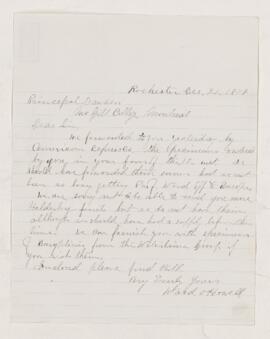 Rochester Dec. 24, 1878
Principal Dawson
McGill College Montreal
Dear Sir
We forwarded to you yesterday by
American Express the specimens ordered
by you in your favor of the inst. We
would have forwarded them sooner but we
been so busy getting Prof. Ward off to Europe.
We are sorry not to be able to send you more
fossils but we do not have them,
although we should have had a supply before this
time. We can furnish you with specimens
of from the Waterlime Group if
you wish them.
Enclosed please find bill.
Very Truly Yours
Ward & Howell